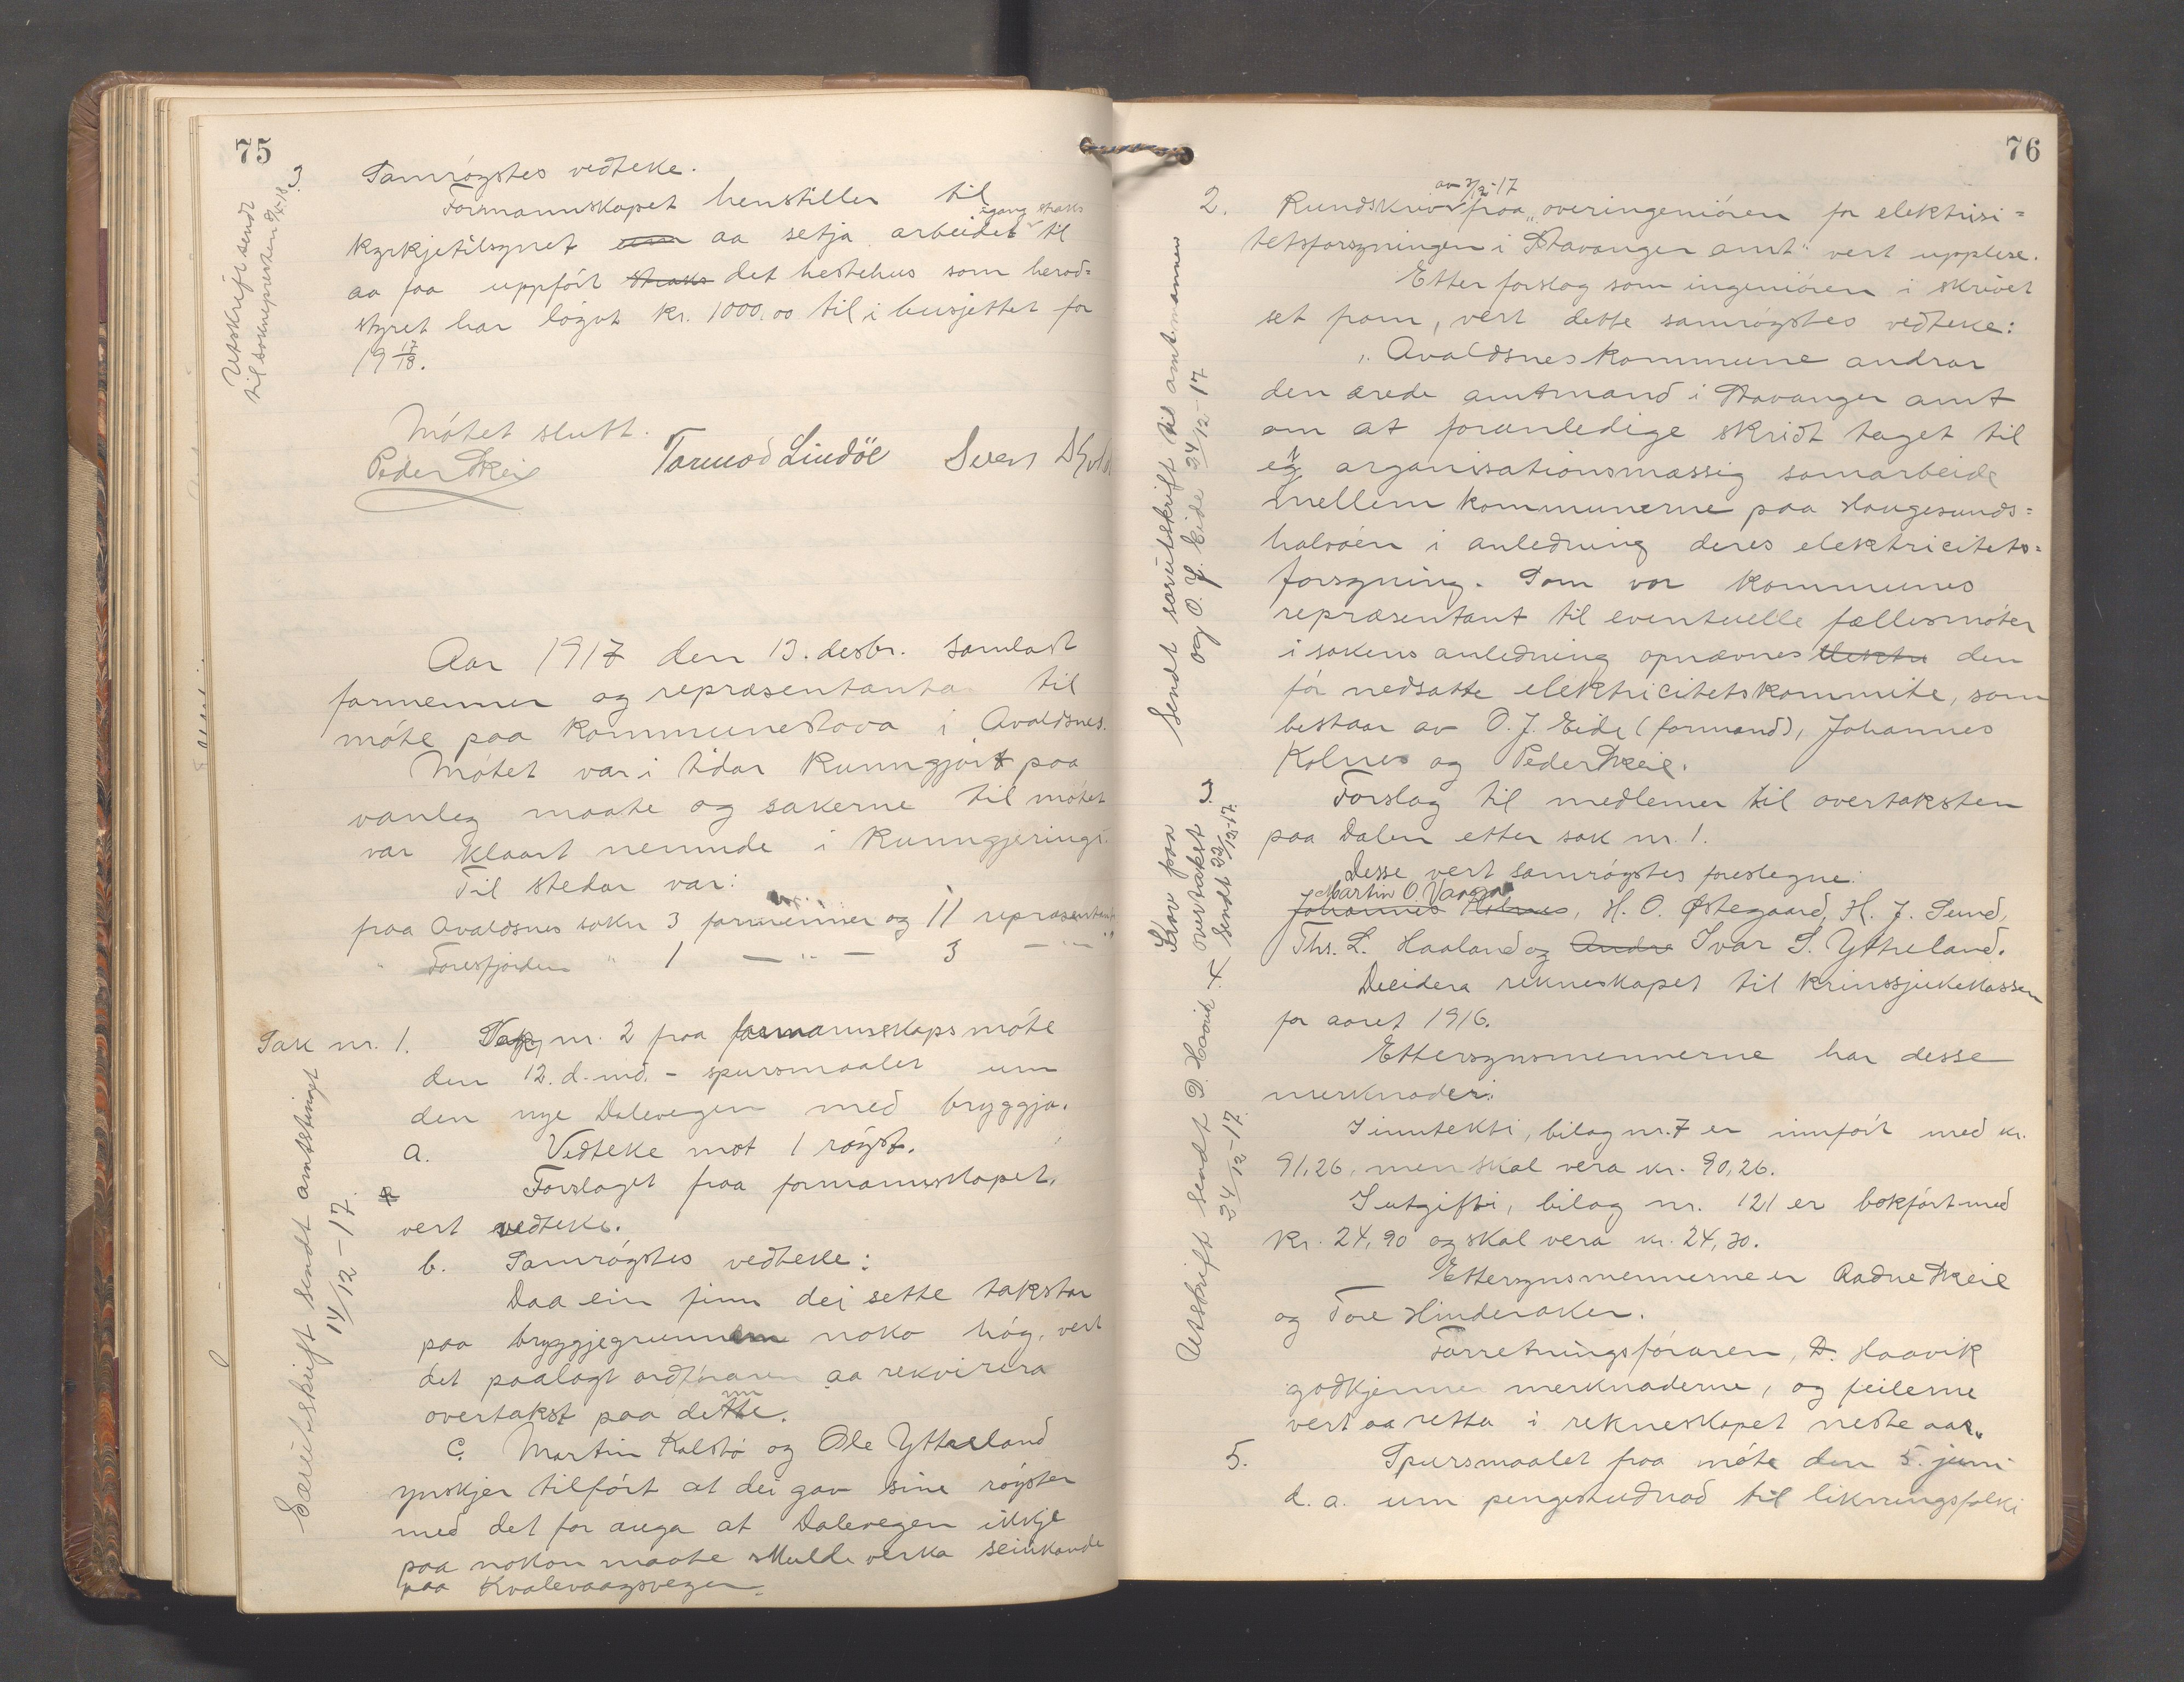 75
Utskrift sendt
til soknepresten 9/1-18
3
Samrøystes vedteke.
Formannskapet henstiller til
kyrkjetilsynet um aa setja arbeidet igang straks til
aa faa uppført straks det hestehus som herad=
styret har løgvt kr. 1000.00 til i busjettet for
19 17/18.
Møtet slutt.
Peder Skeie Tormod Lindöe Svern
Aar 1917 den 13. desbr. samlast
formenner og repræsentantar til
møte paa kommunestova i Avaldsnes.
Møtet var i tidar kunngjort paa
vanleg maate og sakerne til møtet
var klaart nemnde i kunngjeringi.
Til stedar var:
fraa Avaldsnes sokn 3 formenner og 11 repræsentant
" Førresfjorden " 1 — " — 3 — " —
Sak nr. 1. Sak nr. 2 fraa formannskapsmøte
den 12. d. md. - spursmaalet um
den nye Dalevegen med bryggja.
a. Vedteke mot 1 røyst.
Forslaget fraa formannskapet,
vert vedteke.
b. Samrøystes vedteke:
Daa ein finn dei sette takstar
paa bryggjegrunnen noko høg, vert
det paalagt ordføraren aa rekvirera
overtakst paa dette.
c. Martin Kalstø og Ole Ytreland
ynskjer tilført at dei gav sine røyster
med det for auga at Dalevegen ikkje
paa nokon maate skulde verka seinkande
paa Kvalevaagsvegen.
Særutskrift sendt amtstinget
14/12-17.
76
2. Rundskriv av 7/12-17 fraa „overingeniøren for elektrisi=
tetsforsyningen i Stavanger amt" vert upplese.
Etter forslag som ingeniøren i skrivet
set fram, vert dette samrøystes vedteke:
„Avaldsnes kommune andrar
den ærede amtmand i Stavanger amt
om at foranledige skridt taget til
en organisationsmæssig samarbeide
mellem kommunerne paa Haugesunds=
halvøen i anledning deres elektricitets=
forsyning. Som vor kommunes
repræsentant til eventuelle fællesmøter
i sakens anledning opnævnes elektri den
før nedsatte elektricitetskommite, som
bestaar av O. J. Eide (formand), Johannes
Kolnes og Peder Skeie.
Sendt særutskrift til amtmannen
og O. J. Eide 24/12-17
3 Forslag til medlemer til overtaksten
paa Dalen etter sak nr. 1.
Desse vert samrøystes foreslegne:
Martin O. Vaage
Johannes Kolnes, H. O. Østegaard, H. J. Sund,
Ths. L. Haaland og Andre Ivar S. Ytreland.
Krav paa
overtakst
sendt 22/12-17.
4 Decidera rekneskapet til krinssjukekassen
for aaret 1916.
Ettersynsmennerne har desse
merknader:
I inntekti, bilag nr. 7 er innført med kr.
91,26, men skal vera kr. 90,26.
I utgifti, bilag nr. 121 er bokført med
kr. 24,90 og skal vera kr. 24,30.
Ettersynsmennerne er Aadne Skeie
og Tore Hinderaker.
Forretningsføraren, D. Haavik
godkjenner merknaderne, og feilerne
vert aa retta i rekneskapet neste aar.
Utskrift sendt D. Haavik
24/12-17.
5. Spursmaalet fraa møte den 5. juni
d. a. um pengestudnad til likningsfolki